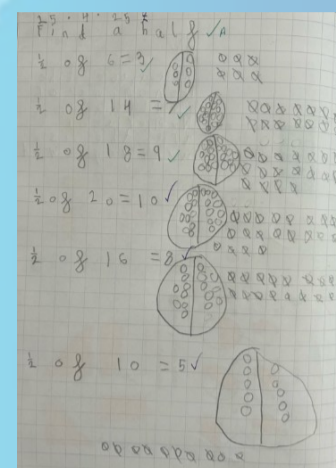 25 . 4 . 25
Find a half
½ of 6 = 3 ✓
½ of 14 =
½ of 18 = 9 ✓
½ of 20 = 10 ✓
½ of 16 = 8 ✓
½ of 10 = 5 ✓